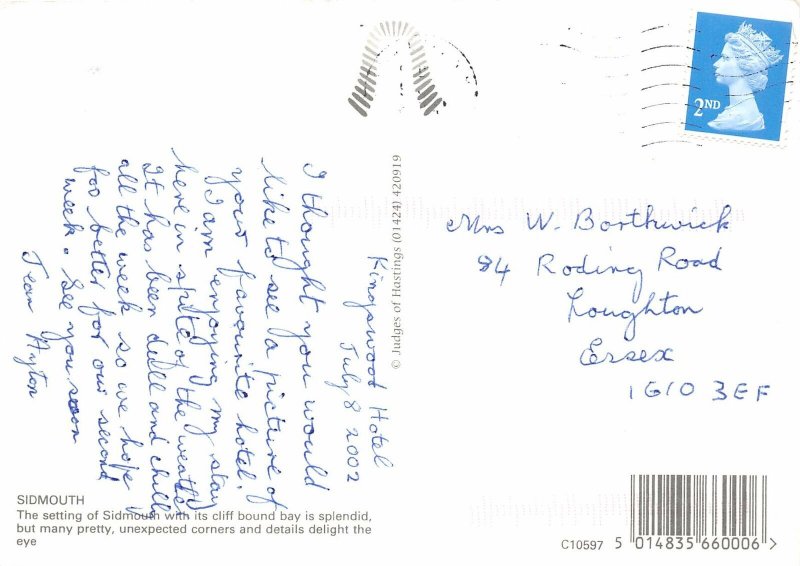 Kingswood Hotel
July 8 2002
I thought you would
like to see a picture of
your favourite hotel.
I am enjoying my stay
here in spite of the weather
It has been dull and chilly
all the week so we hope
for better for our second
week. See you soon
Jean Ayton
© Judges of Hastings (01424) 420919
2ND
Mrs W. Borthwick
84 Roding Road
Loughton
Essex
IG10 3EF
SIDMOUTH
The setting of Sidmouth with its cliff bound bay is splendid,
but many pretty, unexpected corners and details delight the
eye
C10597
5 014835 660006 >